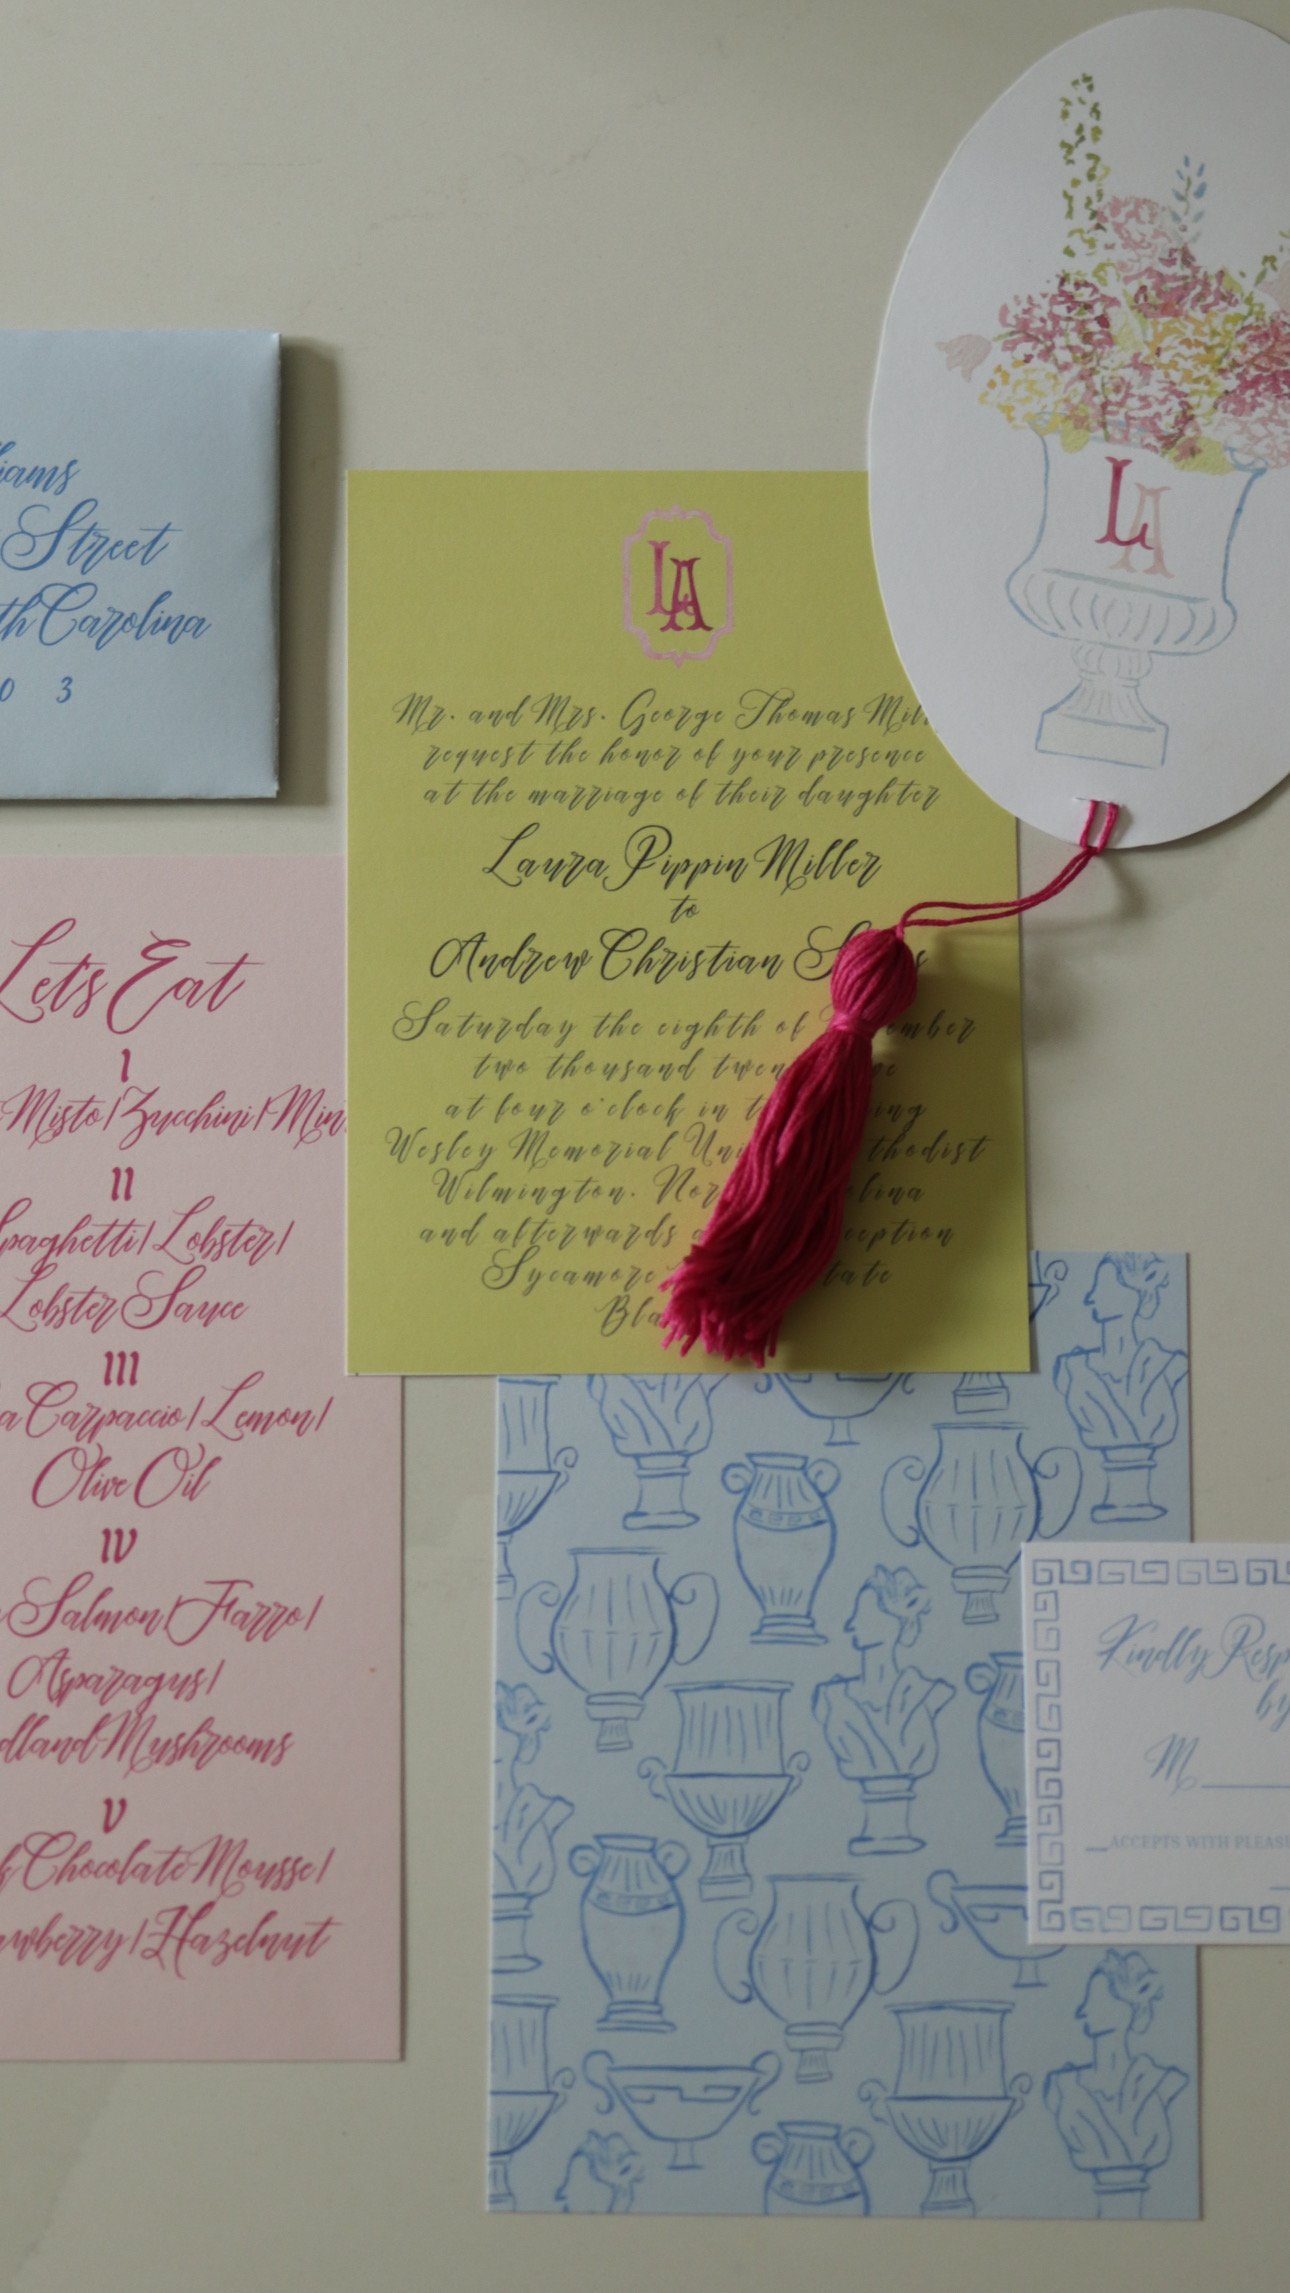 Street
Carolina
0 3
LA
Mr. and Mrs. George Thomas
request the honor of your presence
at the marriage of their daughter
Laura Pippin Miller
to
Andrew Christian
Saturday the eighth of
two thousand
at four o'clock in
Wesley Memorial
Wilmington, North Carolina
and afterwards
Sycamore
LA
Let's Eat
I
Misto/Zucchini/
II
Spaghetti/Lobster/
Lobster Sauce
III
Carpaccio/Lemon/
Olive Oil
IV
Salmon/Farro/
Asparagus/
Mushrooms
V
Chocolate Mousse/
/Hazelnut
Kindly
by
M
ACCEPTS WITH